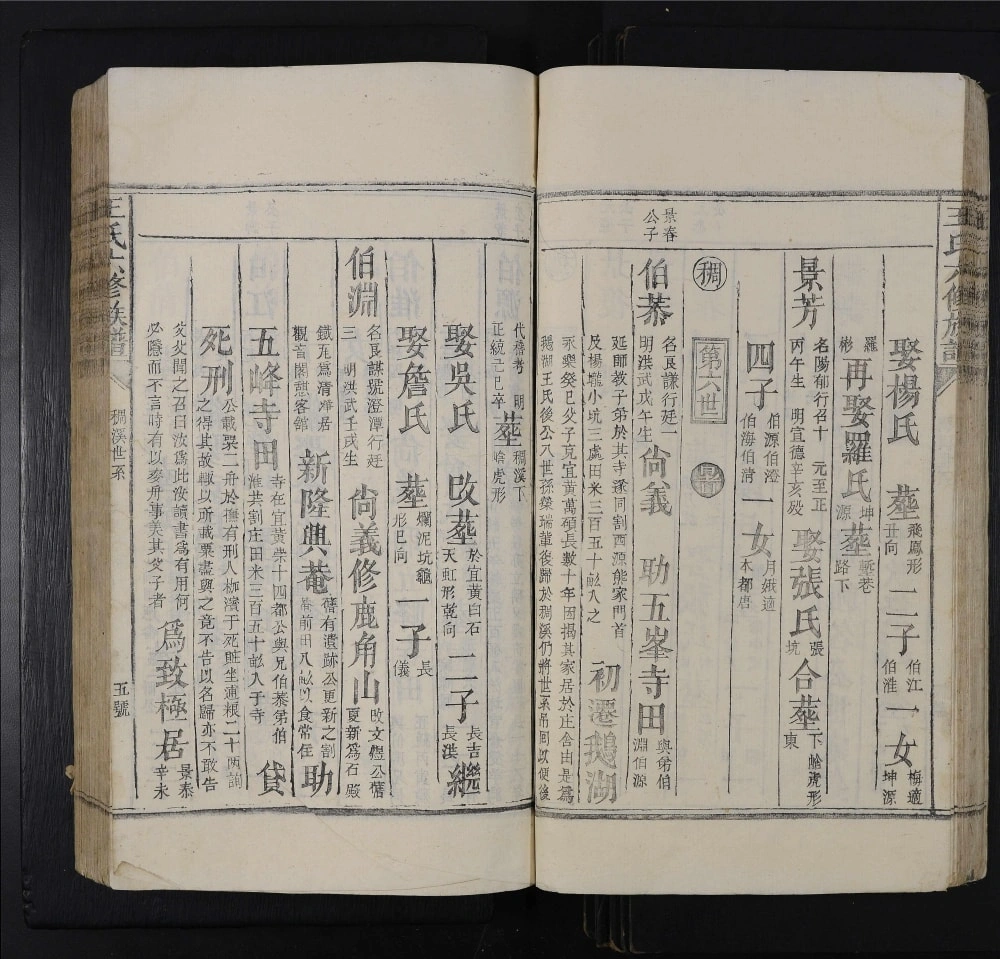 王氏六修族譜
娶楊氏 葬 飛鳳形 丑向 二子 伯江 伯淮 一女 梅適 坤源
羅 彬 再娶羅氏 坤 源 葬 塹巷 路下
景芳 名陽郁行召十 元至正 丙午生 明宣德辛亥歿 娶張氏 張 坑 合葬 下蛤虎形 東
四子 伯源伯澄 伯海伯清 一女 月娥適 本都唐
稠 第六世
景春 公子
伯恭 名良謙行廷一 明洪武戊午生 尚義 助五峯寺田 與弟伯 淵伯源
延師教子弟於其寺遂同割西源熊家門首 及楊墩小坑三處田米三百五十畝入之 初遷鵝湖
永樂癸巳父子克宜黃萬碩長數十年因揭其家居於庄舍由是爲 鵝湖王氏後公八世孫榮瑞輩復歸於稠溪仍將世系吊回以便後
代稽考 明 正統己巳卒 葬 稠溪下 蛤虎形
娶吳氏 改葬 於宜黃白石 天虹形乾向 二子 長吉 長洪 繼
娶詹氏 葬 爛泥坑龜 形巳向 一子 長 儀
伯淵 名良謀號澄潭行廷 三 明洪武壬戌生 尚義修鹿角山 改文僊公舊 夏新爲石殿
鐵瓦爲清淨居 觀音閣憇客館 新隆興菴 舊有遺跡公更新之割 菴前田八畝以食常住 助
五峰寺田 寺在宜黃崇十四都公與兄伯恭弟伯 淮共割庄田米三百五十畝入于寺 貸
死刑 公載粟二舟於撫有刑人枷濱于死賍坐逋粮二十兩詢 之得其故輙以所載粟盡與之竟不告以名歸亦不敢告
父父聞之召曰汝爲此汝讀書爲有用何 必隱而不言時有以麥舟事美其父子者 爲致極居 景泰 辛未
王氏六修族譜 稠溪世系 五號